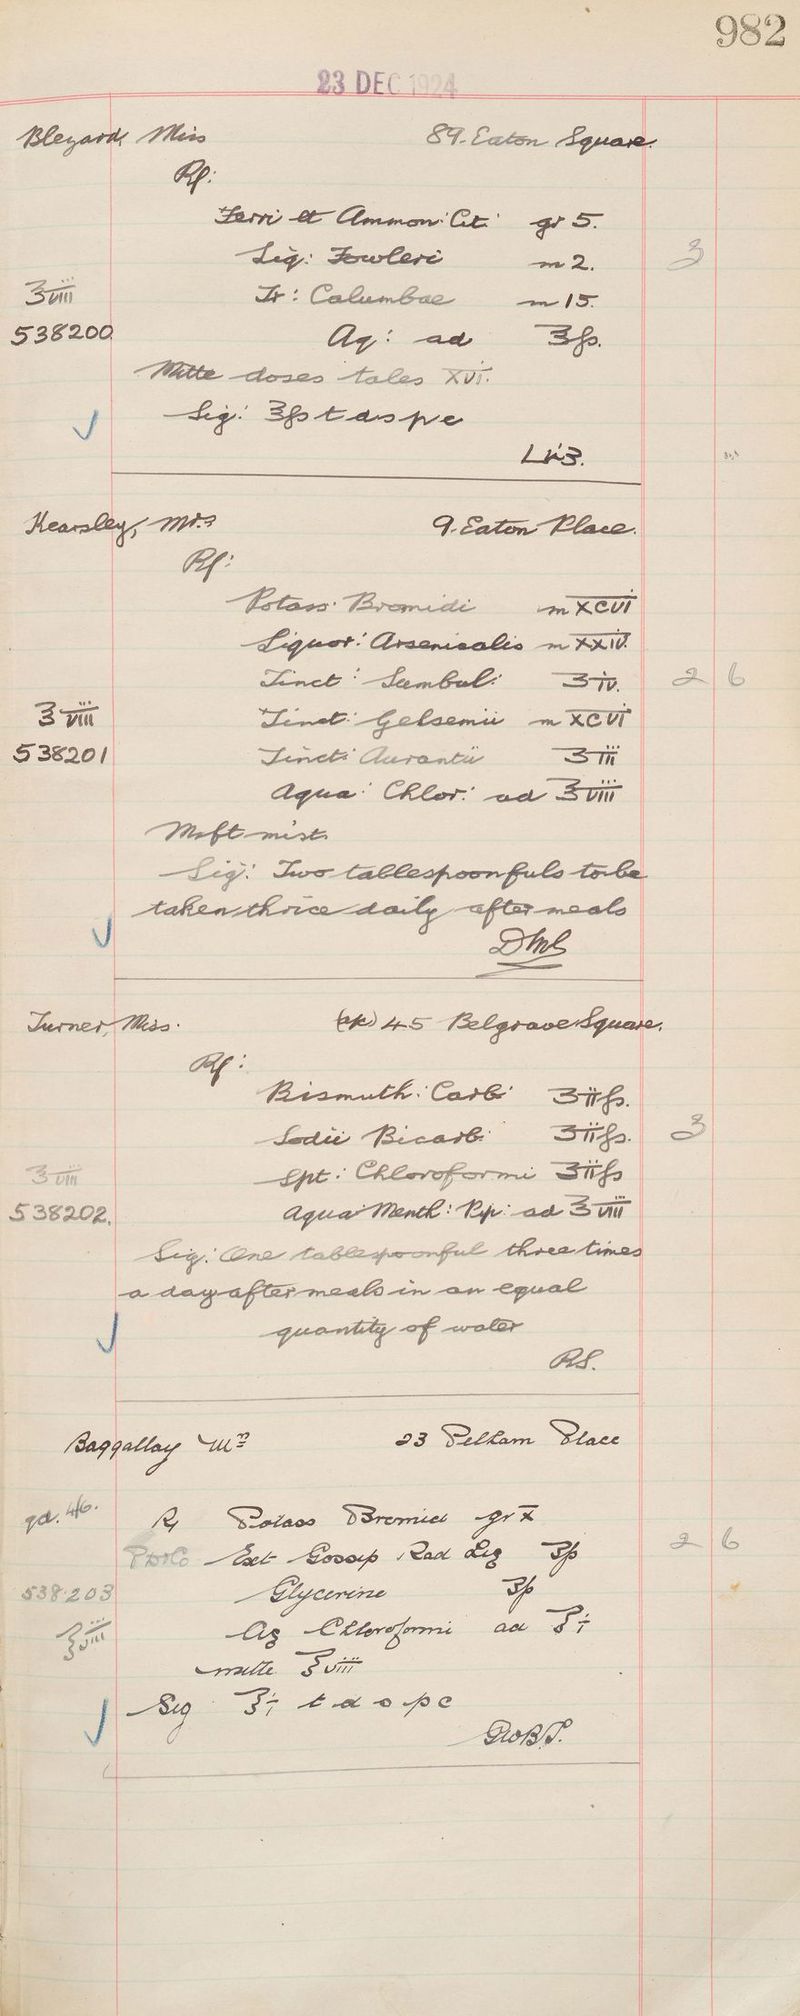 982
23 DEC 1924
Blezard, Miss 89. Eaton Square.
Rx:
Ferri et Ammon: Cit: gr 5.
Liq: Fowleri m 2. 3
℥viii Tr: Calumbae m 15.
538200 Aq: ad ℥ſs.
Mitte doses tales XVI.
Sig: ℥ſs t ds pc
Kearsley, Mrs 9. Eaton Place.
Rx:
Potass: Bromidi m XCVI
Liquor: Arsenicalis m XXIV.
Tinct: Sumbul: ʒIV. 2 6
℥VIII Tinct: Gelsemii m XCVI
538201 Tinct: Aurantii ʒIII
Aqua: Chlor: ad ℥VIII
M. ft mist.
Sig: Two tablespoonfuls to be
taken thrice daily after meals
Turner, Miss. 45 Belgrave Square.
Rx:
Bismuth: Carb: ʒiiſs.
Sodii Bicarb: ʒiiſs. 3
℥VIII Spt: Chloroformi ʒiiſs
538202. Aqua Menth: Pip: ad ℥VIII
Sig: One tablespoonful three times
a day after meals in an equal
quantity of water
RS.
Baggallay Mrs 23 Pelham Place
qd. 4/6. Rx Potass Bromid gr x
Ext Gossyp Rad Liq ʒſs 2 6
538203 Glycerine ʒſs
℥viii Aq Chloroformi ad ℥i
mitte ℥viii
Sig ℥i t d s p c